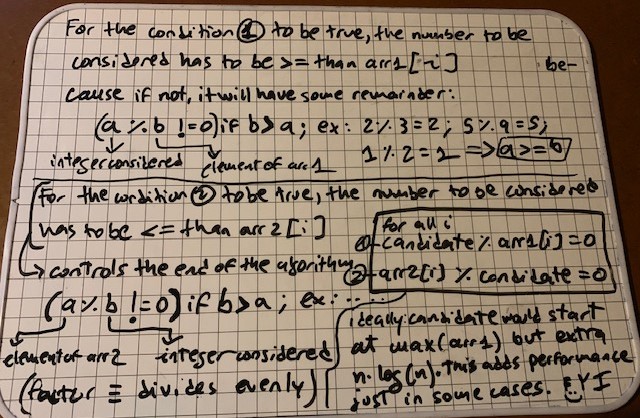 For the condition ① to be true, the number to be
considered has to be >= than arr1[i] be-
cause if not, it will have some remainder:
(a % b != 0) if b > a; ex: 2 % 3 = 2; 5 % 9 = 5;
integer considered element of arr1 1 % 2 = 1 => a >= b
For the condition ② to be true, the number to be considered
has to be <= than arr2[i]
for all i
①-candidate % arr1[i] = 0
controls the end of the algorithm
②-arr2[i] % candidate = 0
(a % b != 0) if b > a; ex: ....
element of arr2 integer considered
(factor ≡ divides evenly)
ideally candidate would start
at max(arr1) but extra
n·log(n). This adds performance
just in some cases. FYI